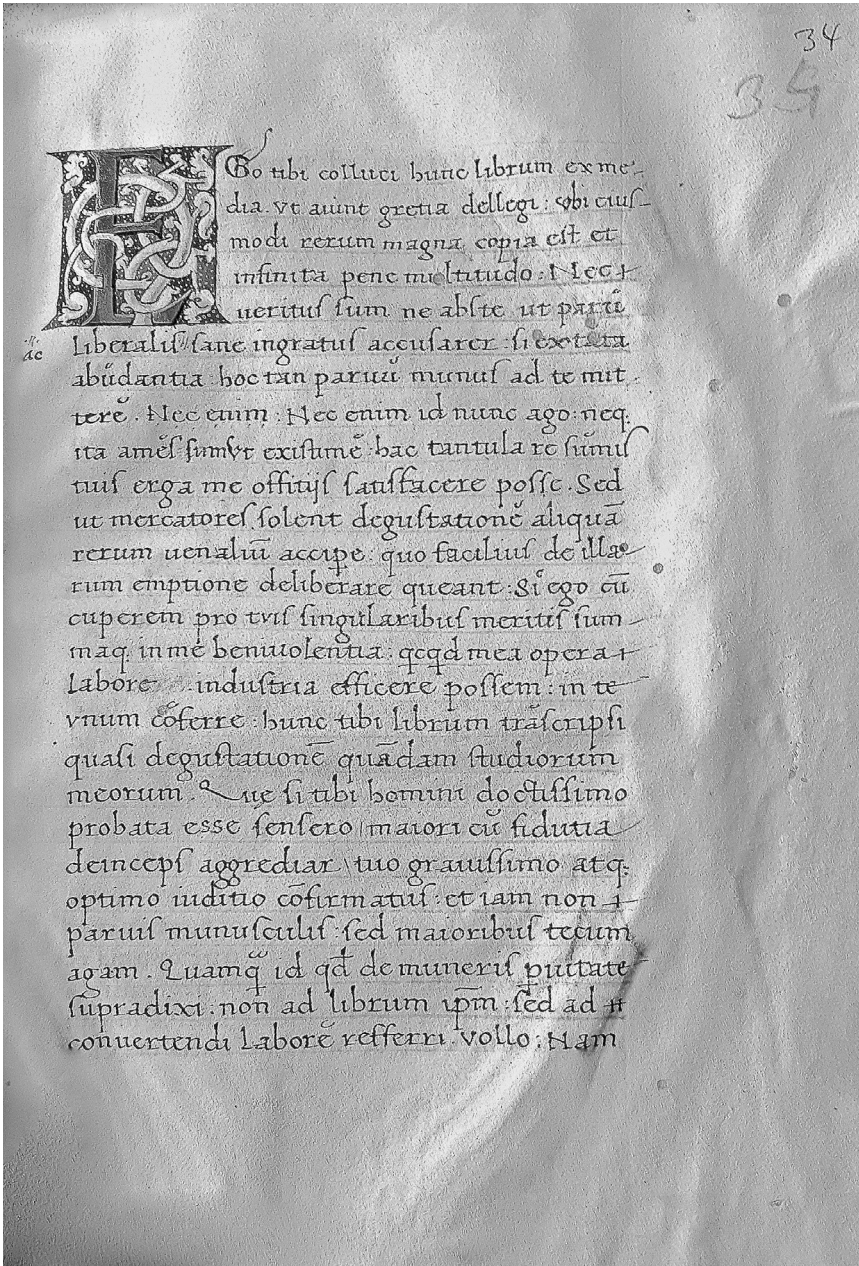 34
35
EGo tibi colluci hunc librum ex me-
dia. vt aiunt gretia dellegi : vbi eius-
modi rerum magna copia est et
infinita pene multitudo : Nec
ueritus sum ne abste ut parũ
ac liberalis sane ingratus accusarer : si ex tãta
abũdantia : hoc tan paruũ munus ad te mit
terẽ . Nec enim : Nec enim id nunc ago : neq.
ita amẽs sum vt existimẽ : hac tantula re sũmis
tuis erga me offitijs satisfacere posse . Sed
ut mercatores solent degustationẽ aliquã
rerum uenaliũ accipe : quo facilius de illa
rum emptione deliberare queant : Si ego cũ
cuperem pro tvis singularibus meritis sum
maq. in me beniuolentia : qcqd mea opera
labore industria efficere possem : in te
vnum cõferre : hunc tibi librum trãscripsi
quasi degustationẽ quãdam studiorum
meorum . Que si tibi homini doctissimo
probata esse sensero / maiori cũ fidutia
deinceps aggrediar \ tuo grauissimo atq;
optimo iuditio cõfirmatus : et iam non
paruis munusculis : sed maioribus tecum
agam . Quamq̃ id qđ de muneris puitate
supradixi : non ad librum ip̃m : sed ad
conuertendi laborẽ refferri . vollo : Nam